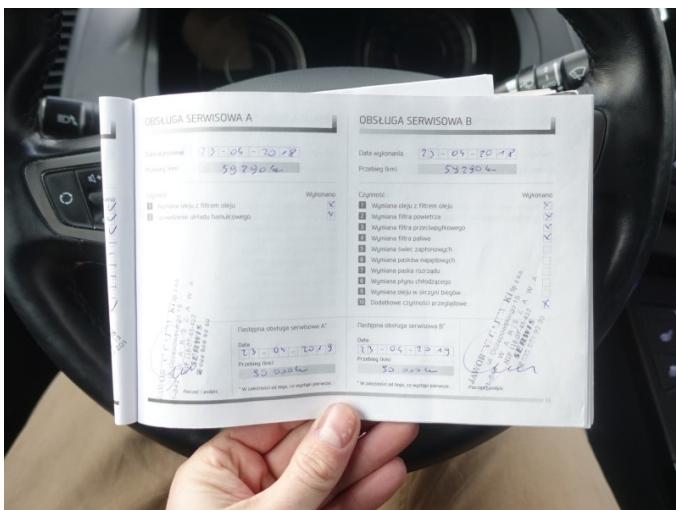 OBSŁUGA SERWISOWA A
Data wykonania 23-04-2018
Przebieg (km) 59290 km
Czynność Wykonano
1 Wymiana oleju z filtrem oleju x
2 Sprawdzenie układu hamulcowego x
Następna obsługa serwisowa A*
Data
23-04-2019
Przebieg (km)
* W zależności od tego, co wystąpi pierwsze.
Pieczęć i podpis
OBSŁUGA SERWISOWA B
Data wykonania 23-04-2018
Przebieg (km) 59290 km
Czynność Wykonano
1 Wymiana oleju z filtrem oleju x
2 Wymiana filtra powietrza x
3 Wymiana filtra przeciwpyłkowego x
4 Wymiana filtra paliwa x
5 Wymiana świec zapłonowych
6 Wymiana pasków napędowych
7 Wymiana paska rozrządu
8 Wymiana płynu chłodzącego
9 Wymiana oleju w skrzyni biegów
10 Dodatkowe czynności przeglądowe x
Następna obsługa serwisowa B*
Data
23-04-2019
Przebieg (km)
* W zależności od tego, co wystąpi pierwsze.
Pieczęć i podpis
SERWIS